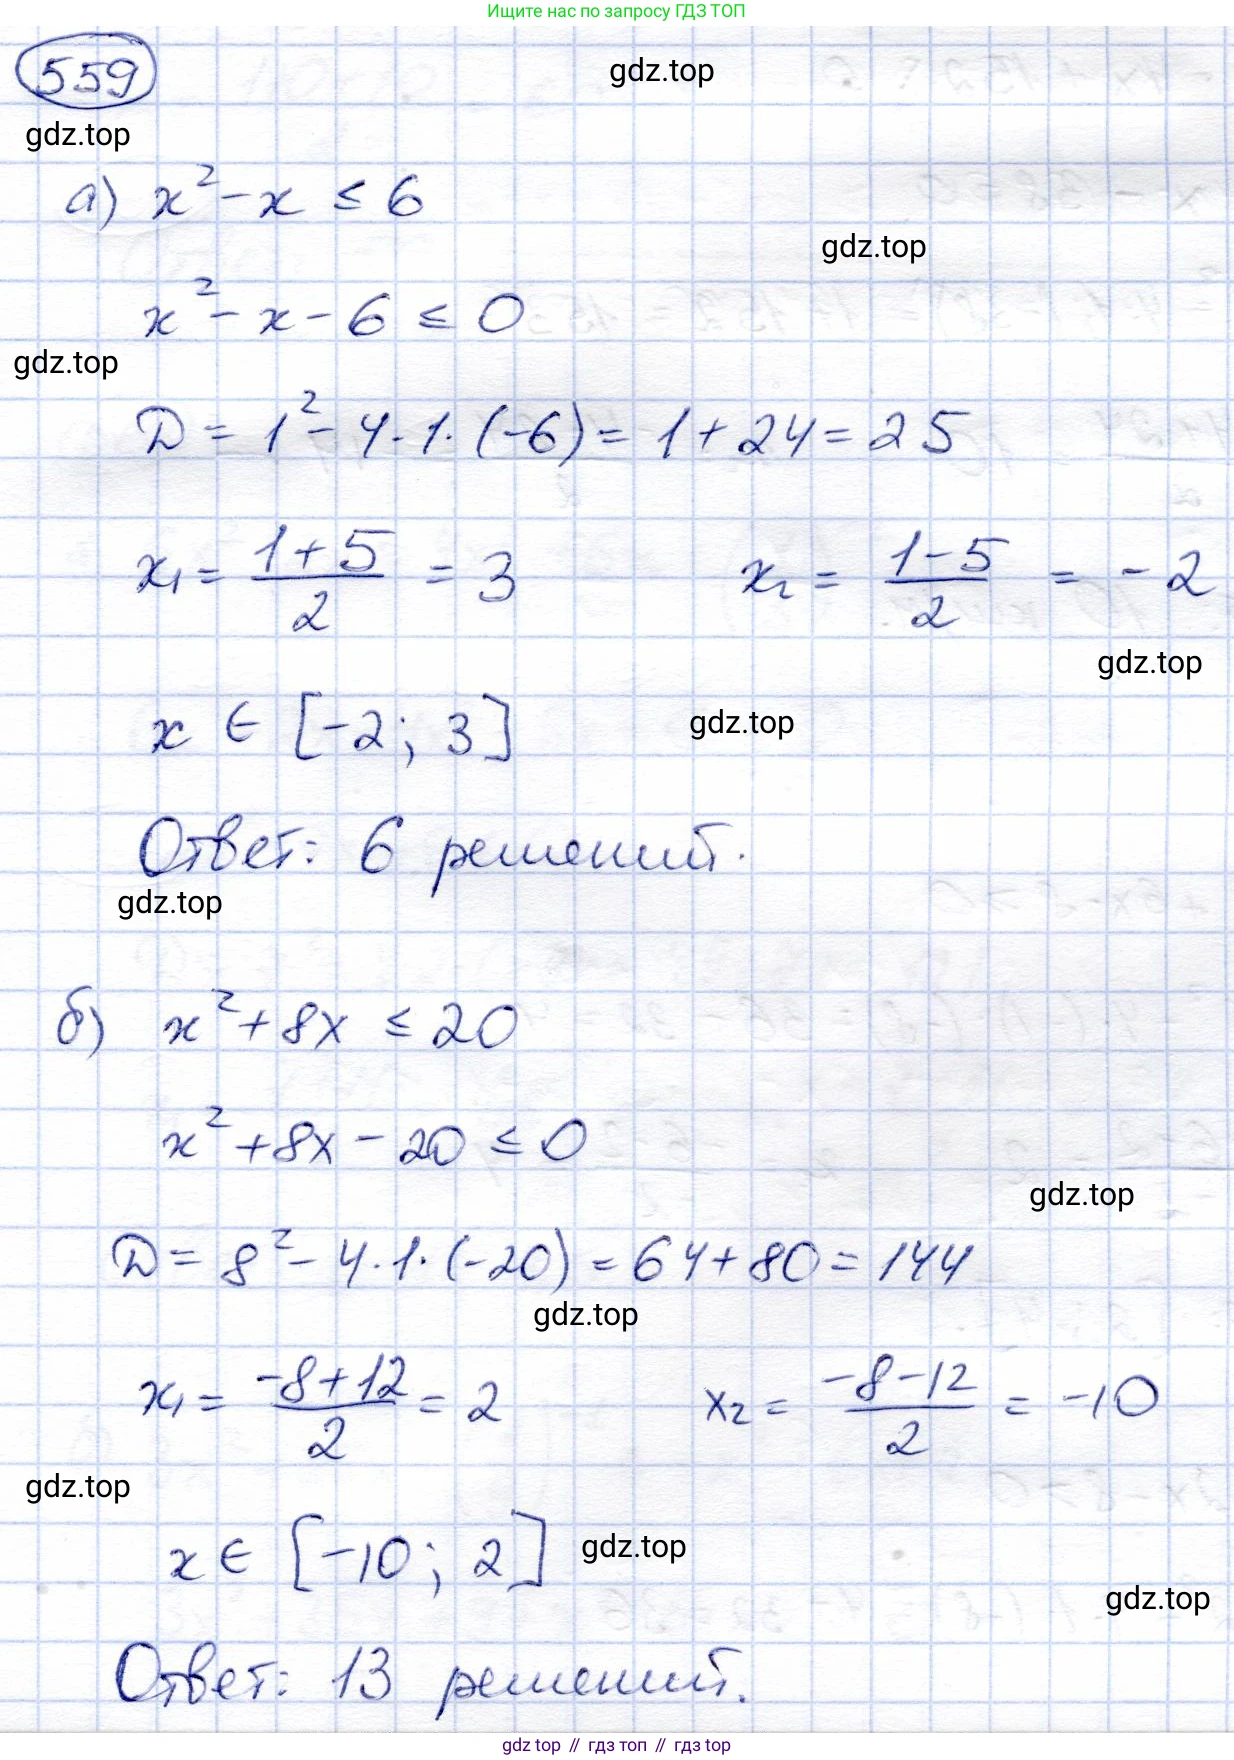 Ищите нас по запросу ГДЗ ТОП
559
gdz.top
gdz.top
а) x² - x ≤ 6
gdz.top
x² - x - 6 ≤ 0
gdz.top
D = 1² - 4 · 1 · (-6) = 1 + 24 = 25
x₁ = (1 + 5)/2 = 3 x₂ = (1 - 5)/2 = -2
gdz.top
x ∈ [-2; 3]
gdz.top
Ответ: 6 решений.
gdz.top
б) x² + 8x ≤ 20
x² + 8x - 20 ≤ 0
gdz.top
D = 8² - 4 · 1 · (-20) = 64 + 80 = 144
gdz.top
x₁ = (-8 + 12)/2 = 2 x₂ = (-8 - 12)/2 = -10
gdz.top
x ∈ [-10; 2]
gdz.top
gdz.top
Ответ: 13 решений.
gdz top // гдз топ // гдз top